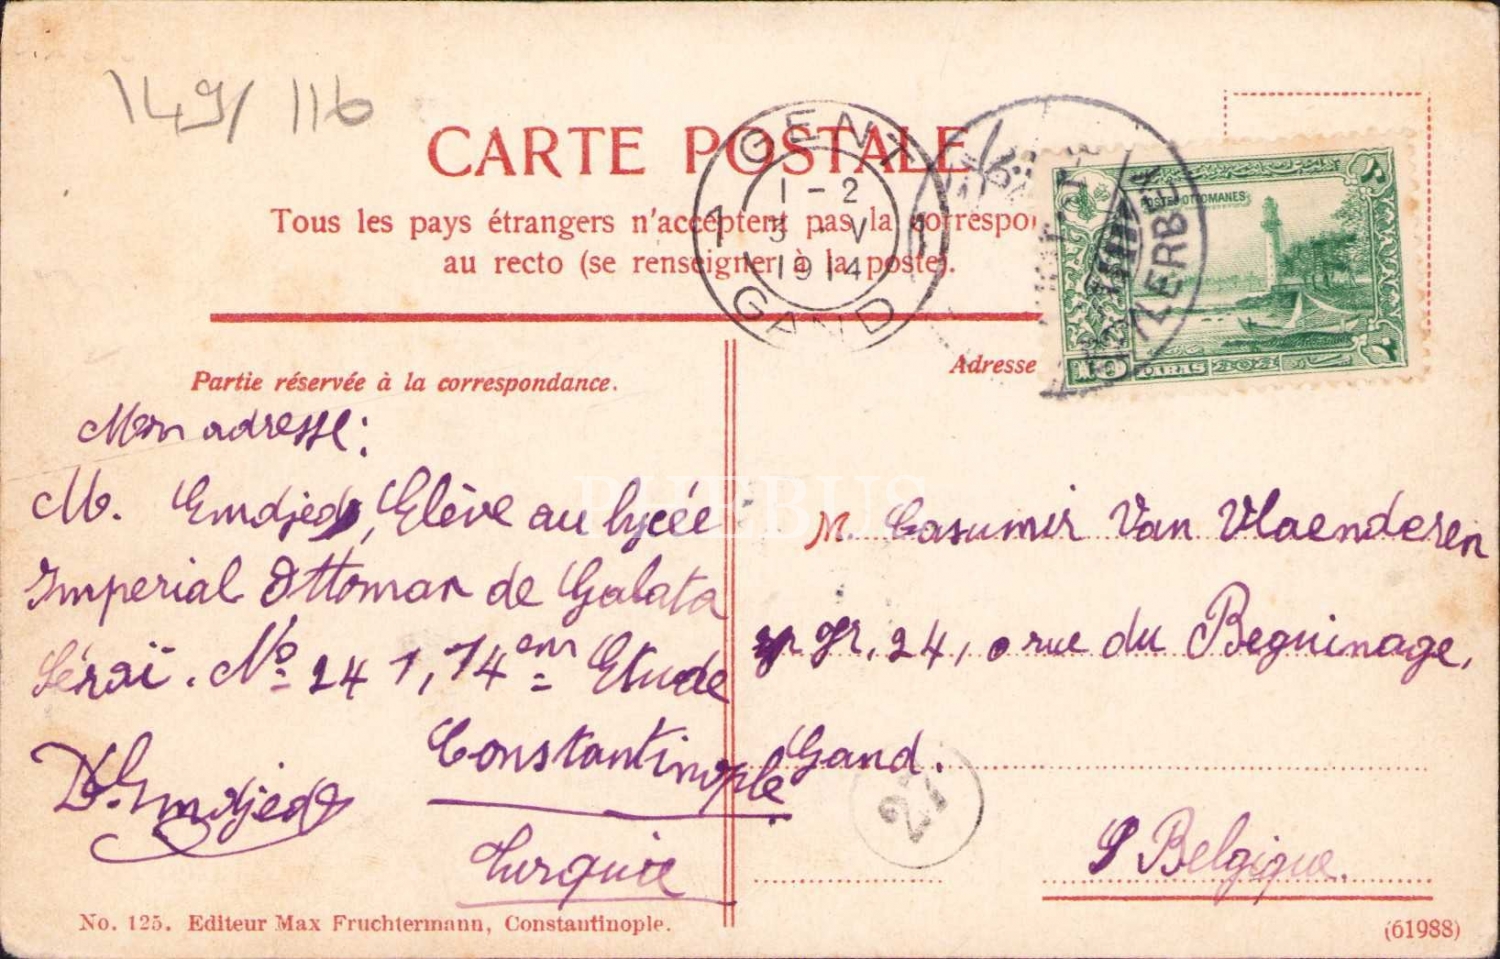 149/ 116
CARTE POSTALE
Tous les pays étrangers n'acceptent pas la correspon
au recto (se renseigner à la poste).
GENT
1 1
1-2
3 - V
1914
GAND
ZERBEY
POSTES OTTOMANES
PARAS
Partie réservée à la correspondance.
Adresse
Mon adresse:
M. Emdjed, Elève au lycée
Imperial Ottoman de Galata
Séraï. No 241, 14em Etude
Constantinople
Turquie
D. Emdjed
M. Casumir Van Vlaenderen
gr. 24, rue du Beguinage,
Gand.
27
Belgique.
PHEBUS
No. 125. Editeur Max Fruchtermann, Constantinople.
(61988)